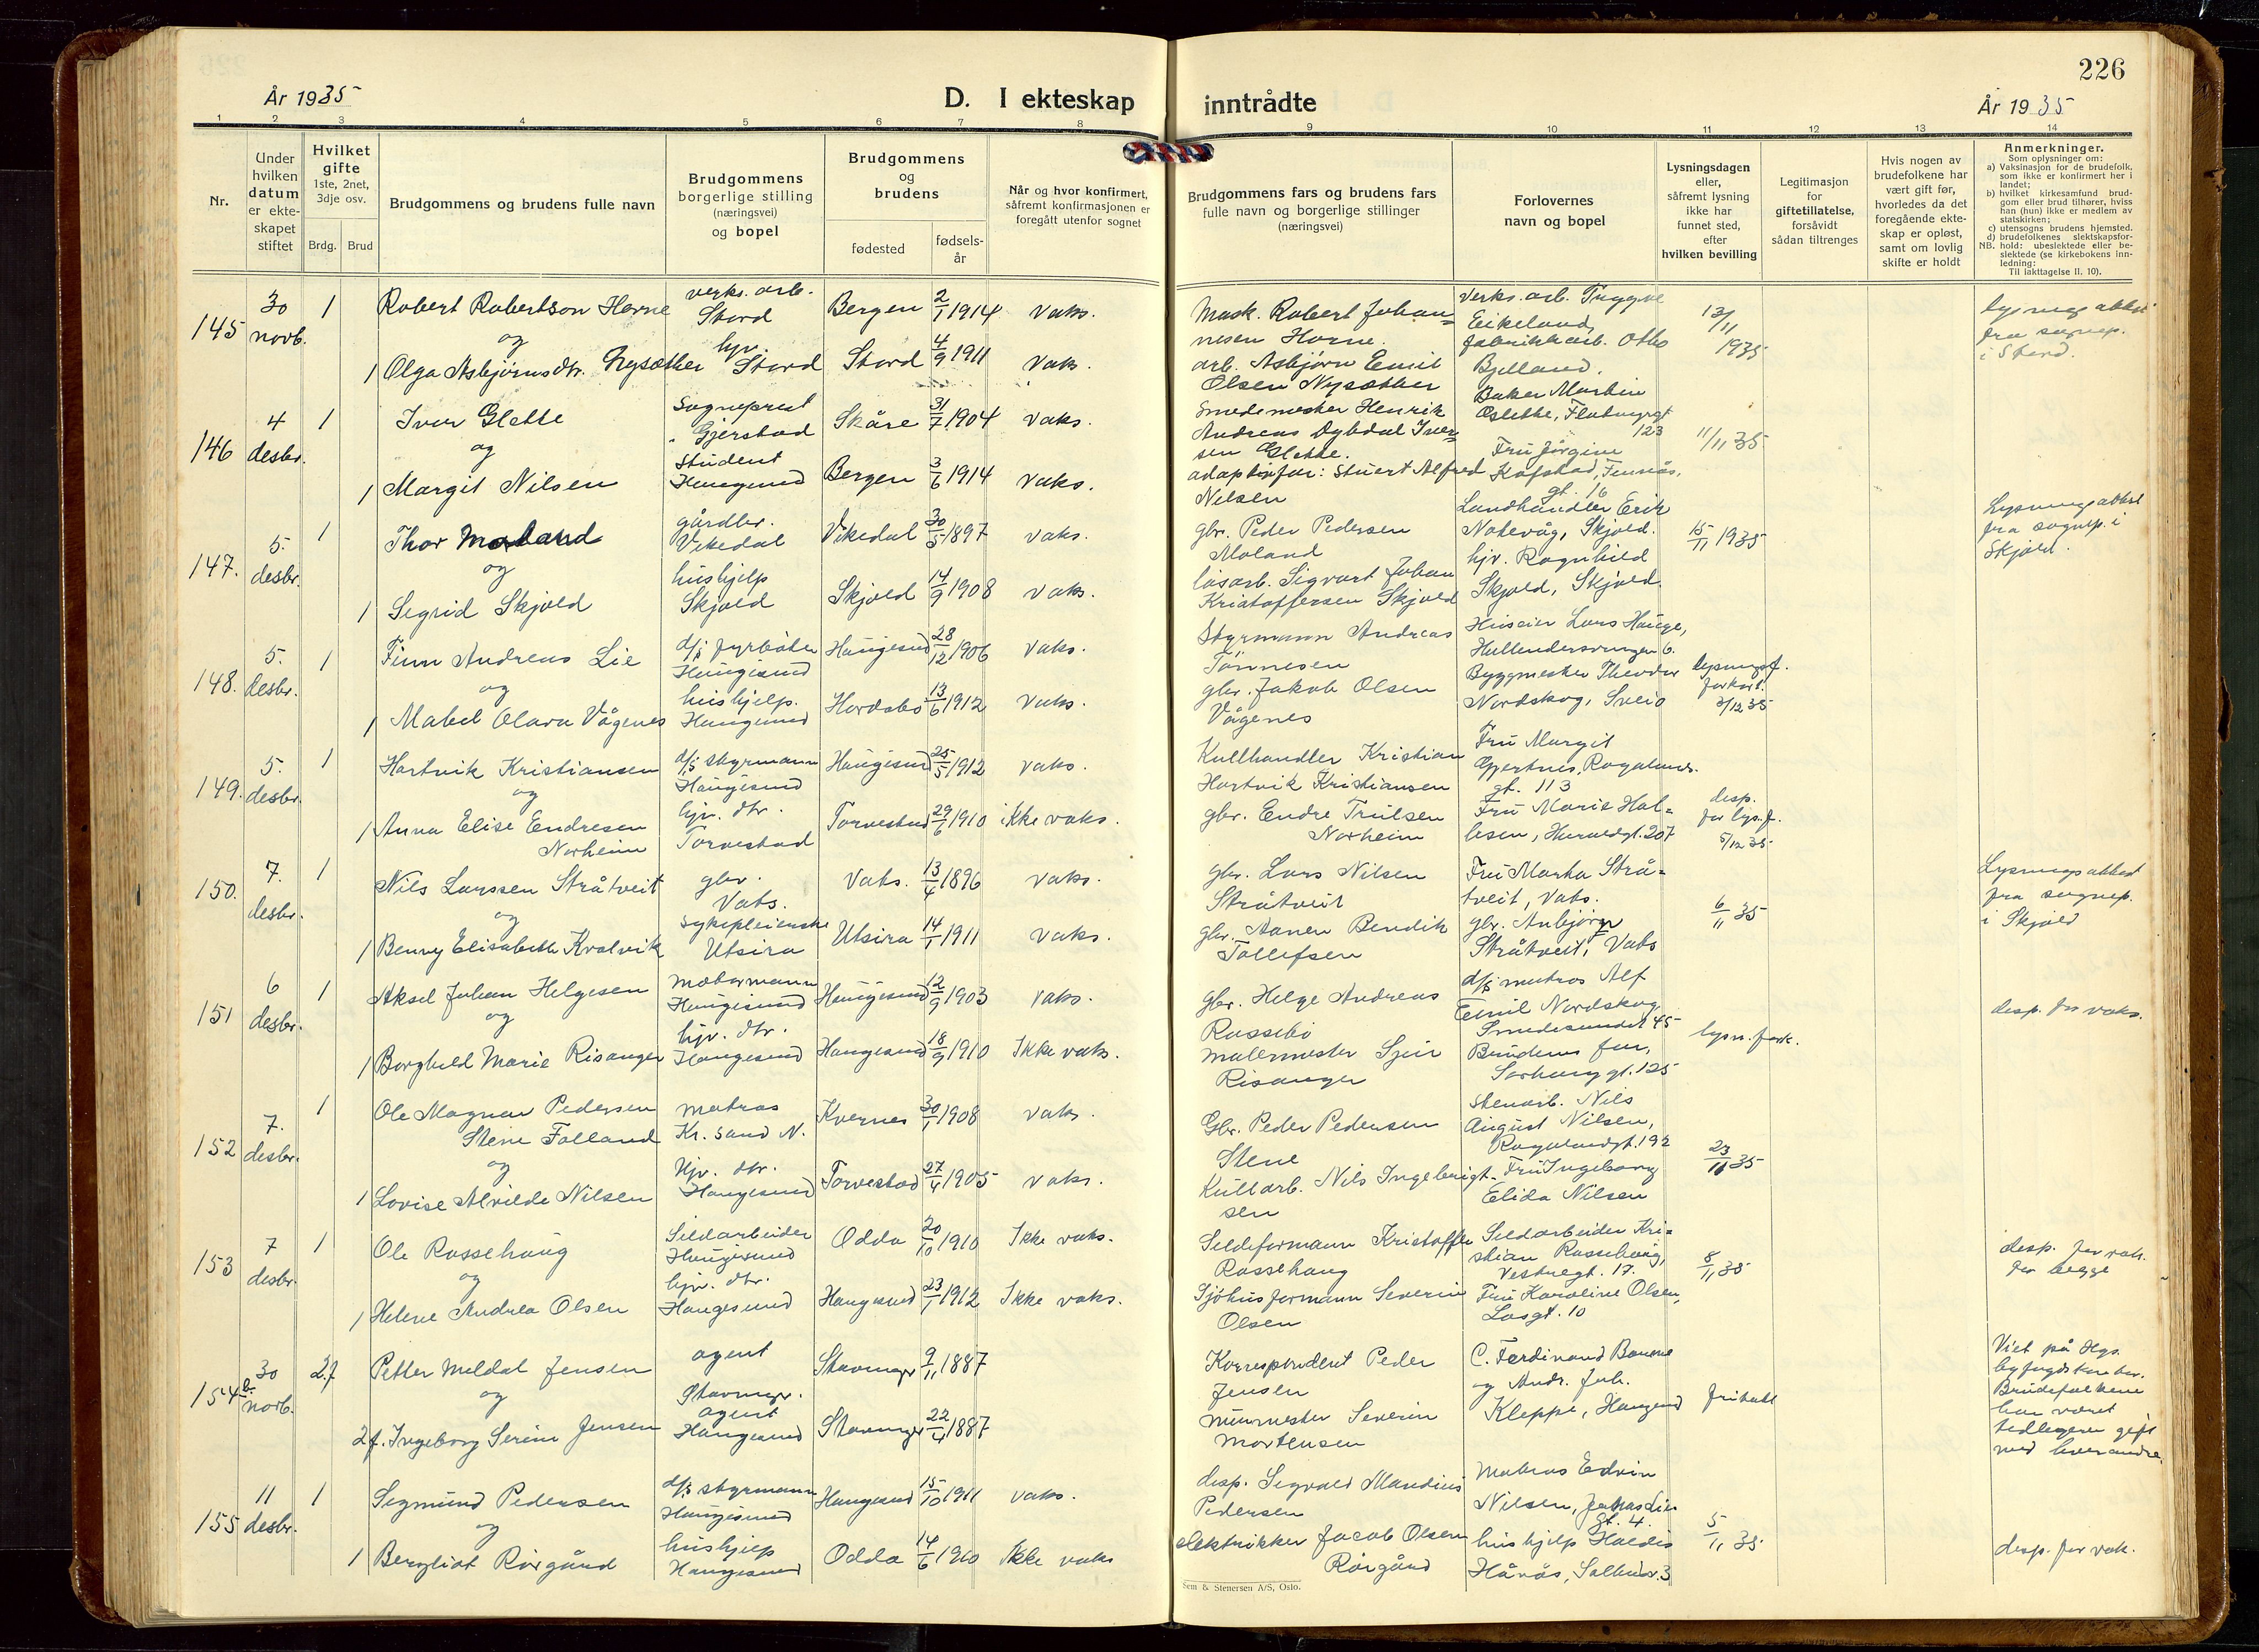 226
År 1935
D. I ekteskap
inntrådte
År 1935
1 2 3 4 5 6 7 8 9 10 11 12 13 14
Nr.
Under
hvilken
datum
er ekte-
skapet
stiftet
Hvilket
gifte
1ste, 2net,
3dje osv.
Brdg. Brud
Brudgommens og brudens fulle navn
Brudgommens
borgerlige stilling
(næringsvei)
og bopel
Brudgommens
og
brudens
fødested
fødsels-
år
Når og hvor konfirmert,
såfremt konfirmasjonen er
foregått utenfor sognet
Brudgommens fars og brudens fars
fulle navn og borgerlige stillinger
(næringsvei)
Forlovernes
navn og bopel
Lysningsdagen
eller,
såfremt lysning
ikke har
funnet sted,
efter
hvilken bevilling
Legitimasjon
for
giftetillatelse,
forsåvidt
sådan tiltrenges
Hvis nogen av
brudefolkene har
vært gift før,
hvorledes da det
foregående ekte-
skap er opløst,
samt om lovlig
skifte er holdt
Anmerkninger.
Som oplysninger om:
a) Vaksinasjon for de brudefolk,
som ikke er konfirmert her i
landet;
b) hvilket kirkesamfund brud-
gom eller brud tilhører, hviss
han (hun) ikke er medlem av
statskirken;
c) utensogns brudens hjemsted.
d) brudefolkenes slektskapsfor-
NB. hold: ubeslektede eller be-
slektede (se kirkebokens inn-
ledning:
Til iakttagelse II. 10).
145 30 novb. 1 Robert Robertson Horne verks. arb. Stord Bergen 2/1 1914 vaks.
og
1 Olga Asbjørnsdtr. Nysæther hjv. Stord Stord 4/9 1911 vaks.
Mask. Robert Johan=
nesen Horne.
arb. Asbjørn Emil
Olsen Nysæther
verks. arb. Tryggve
Eikeland,
fabrikkarb. Otto
Bjelland.
13/11 1935
lysningsattest
fra sognep.
i Stord.
146 4 desbr. 1 Iver Glette Sogneprest Gjerstad Skåre 31/7 1904 vaks.
og
1 Margit Nilsen Student Haugesund Bergen 3/6 1914 vaks.
Smedmester Henrik
Andreas Dybdal Iver=
sen Glette.
adoptivfar: Stuert Alfred
Nilsen
Baker Martin
Oslette, Flotmyrgt
123
Fru Jörgine
Kofstad, Fennås.
gt. 16
11/11 35
147. 5. desbr. 1 Thor Moland gårdbr. Vikedal Vikedal 30/5 1897 vaks.
og
1 Sigrid Skjold hushjelp Skjold Skjold 14/9 1908 vaks.
gbr. Peder Pedersen
Moland
løsarb. Sigvart Johan
Kristoffersen Skjold
Landhandler Erik
Notevåg, Skjold.
hjv. Ragnhild
Skjold, Skjold.
15/11 1935
Lysningsattest
fra sognep. i
Skjold.
148. 5. desbr. 1 Finn Andreas Lie d/s fyrböter Haugesund Haugesund 28/12 1906 vaks.
og
1 Mabel Olara Vågenes hushjelp. Haugesund Hordabø 13/6 1912 vaks.
Styrmann Andreas
Tönnesen
gbr. Jakob Olsen
Vågenes
Huseier Lars Hauge,
Hullendersvingen 6.
Byggmester Theodor
Nordskog, Sveio
lysningsf.
forkort.
3/12 35
149. 5. desbr. 1 Hartvik Kristiansen d/s styrmann Haugesund Haugesund 25/5 1912 vaks.
og
1 Anna Elise Endresen
Norheim hjv. dtr. Torvestad Torvestad 29/6 1910 ikke vaks.
Kullhandler Kristian
Hartvik Kristiansen
gbr. Endre Trulsen
Norheim
Fru Margit
Gjertnes, Rogalands.
gt. 113
Fru Marie Hal=
lesen, Haraldgt. 207
desp.
for lys.f.
5/12 35
150. 7. desbr. 1 Nils Larssen Stråtveit gbr. Vats. Vats. 13/4 1896 vaks.
og
1 Benny Elisabeth Kvalvik sykepleierske Utsira Utsira 14/1 1911 vaks.
gbr. Lars Nilsen
Stråtveit
gbr. Aanen Bendik
Tollefsen
Fru Marta Strå=
tveit, Vats.
gbr. Anbjørn
Stråtveit, Vats
6/11 35
Lysningsattest
fra sognep.
i Skjold
151 6 desbr. 1 Aksel Johan Helgesen motormann Haugesund Haugesund 12/9 1903 vaks.
og
1 Borghild Marie Risanger hjv. dtr. Haugesund Haugesund 18/9 1910 Ikke vaks.
gbr. Helge Andreas
Rossebö
malermester Sjur
Risanger
d/s matros Alf
Emil Nordskog.
Smedesundet 45
Brudens far,
Sørhauggt. 125
lysn. fork.
desp. for vaks.
152 7. desbr. 1 Ole Magnar Pedersen
Stene Folland matros Kr. sand N. Kvernes 30/1 1908 vaks.
og
1 Lovise Alvilde Nilsen Hjv. dtr. Haugesund Torvestad 27/4 1905 vaks.
Gbr. Peder Pedersen
Stene
Kullarb. Nils Ingebrigt-
sen
Stenarb. Nils
August Nilsen,
Rogalandgt. 192
Fru Ingeborg
Elida Nilsen
23/11 35
153 7 desbr. 1 Ole Rossehaug Sildarbeider Haugesund Odda 20/10 1910 Ikke vaks.
og
1 Helene Andrea Olsen hjv. dtr. Haugesund Haugesund 23/1 1912 Ikke vaks.
Sildeformann Kristoffer
Rossehaug
Sjöhusformann Severin
Olsen
Sildarbeider Kri=
stian Rossehaug,
Vestregt. 17.
Fru Karoline Olsen,
Losgt. 10
8/11 35
desp. for vak.
for begge
154 b. 30 novb. 2.f Petter Meldal Jensen agent Stavanger. Stavanger 9/11 1887
og
2 f. Ingeborg Serine Jensen agent Haugesund Stavanger 22/4 1887
Korrespondent Peder
Jensen
murmester Severin
Mortensen
C. Ferdinand Banne
og Andr. Joh.
Kleppe, Haugesund
Viet på Hgs.
byfogdskontor.
Brudefolkene
har været
tidligere gift
med hverandre.
155 11 desbr. 1 Sigmund Pedersen d/s styrmann Haugesund Haugesund 15/10 1911 vaks.
og
1 Bergliot Rörgård hushjelp Haugesund Odda 14/6 1910 Ikke vaks
disp. Sigvald Mandius
Pedersen
elektrikker Jacob Olsen
Rörgård
Matros Edvin
Nilsen, Jonas Lies
gt. 4.
hushjelp Haldis
Hårås, Salhusv. 3
5/11 35
desp. for vak.
Sem & Stenersen A/S, Oslo.